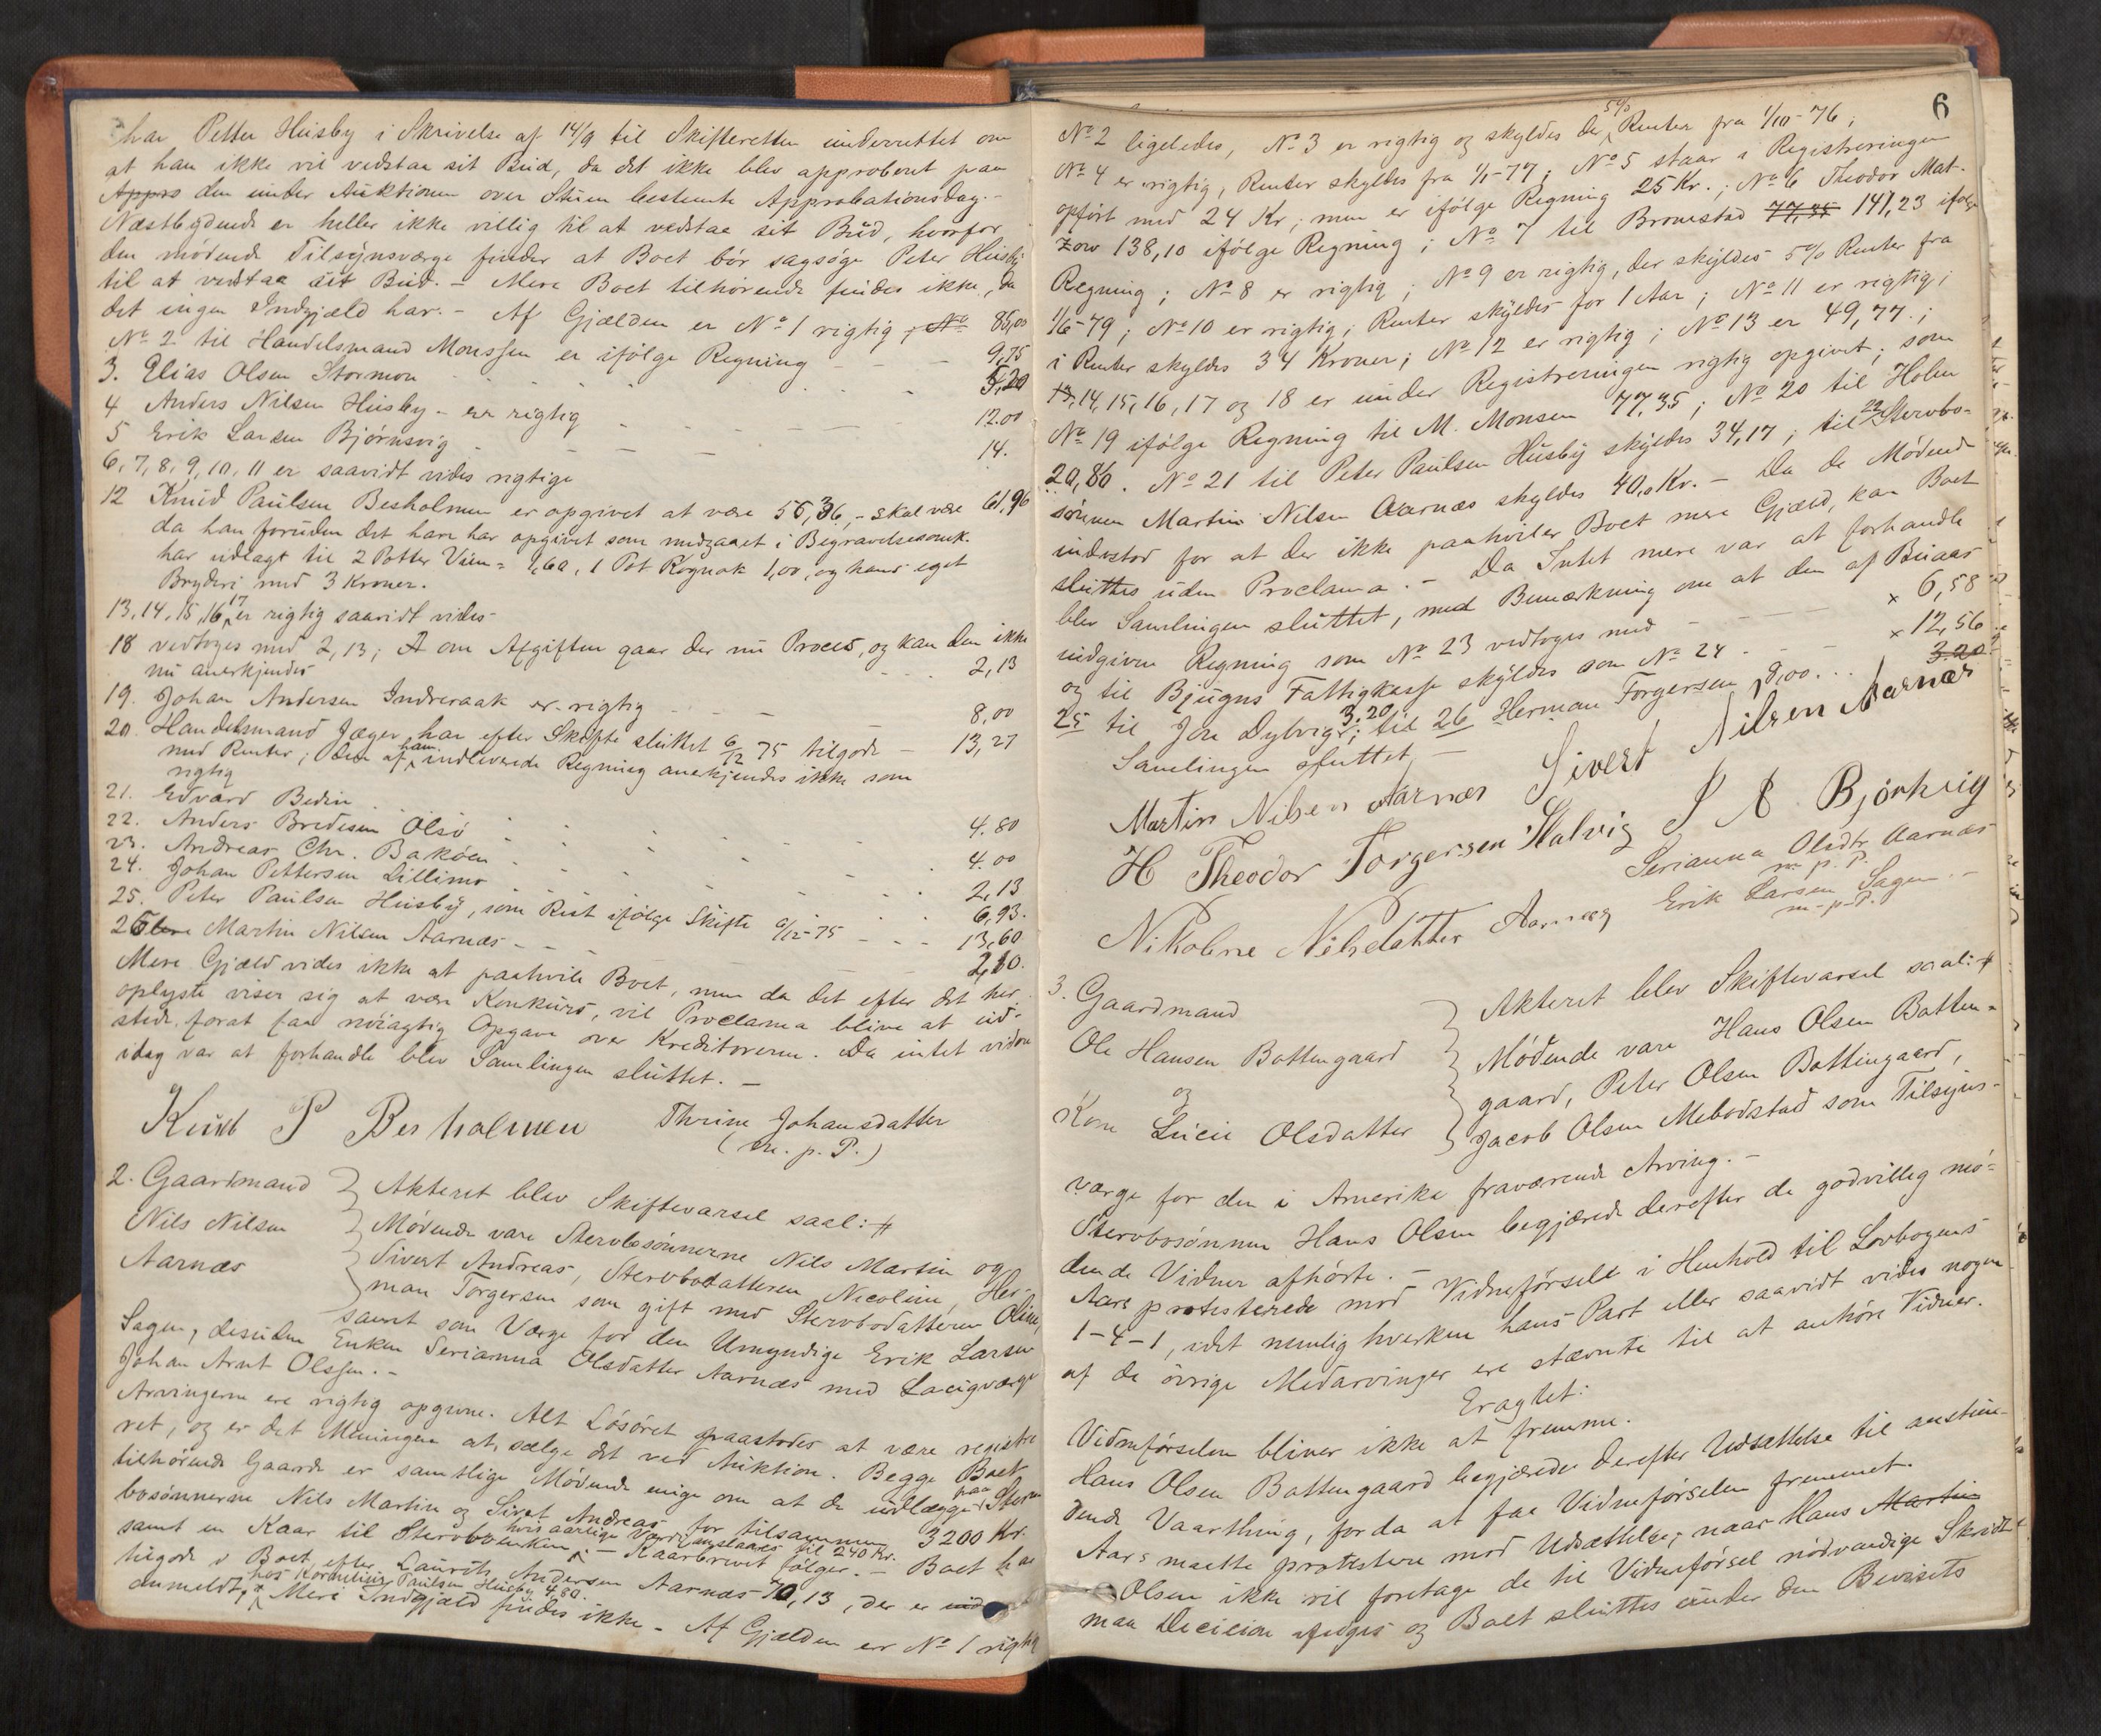 har Petter Husby i Skrivelse af 14/9 til Skifteretten underrettet om
at han ikke vil vedstaa sit Bud, da det ikke blev approberet paa
Appro den under Auktionen over Stuen bestemte Approbationsdag. -
Næstbydende er heller ikke villig til at vedstaa sit Bud, hvorfor
den mødende Tilsynsværge finder at Boet bør sagsøge Peter Husby
til at vedstaa sit Bud. - Mere Boet tilhørende findes ikke, da
det ingen Indgjæld har. - Af Gjælden er No 1 rigtig, No
No 2 til Handelsmand Monssen er ifølge Regning - - 86,00
3. Elias Olsen Stormon 9,75
4 Anders Nilsen Husby - er rigtig 5,20
5 Erik Larsen Bjørnsvig - - - 12.00
6, 7, 8, 9, 10, 11 er saavidt vides rigtige 14.
12 Knud Paulsen Besholmen er opgivet at være 56,36, - skal være 61,96
da han foruden det han har opgivet som medgaaet i Begravelsesomk.
har udlagt til 2 Potter Viin = 1,60, 1 Pot Kognak 1,00, og hans eget
Bryderi med 3 Kroner.
13, 14, 15, 16, 17 er rigtig saavidt vides -
18 vedtoges med 2,13; A om Afgiften gaar der nu Proces, og kan den ikke
nu anerkjendes - - - 2,13
19. Johan Andersen Indreraak er rigtig - - - 8,00
20. Handelsmand Jæger har efter Skifte sluttet 6/12 75 tilgode - 13,27
med Renter; Den af ham indleverede Regning anerkjendes ikke som
rigtig
21. Edvard Bedin 4.80
22. Anders Bredesen Olsø 4.00
23. Andreas Chr. Bakøen 2,13
24. Johan Pettersen Lillimo 6,93.
25. Peter Paulsen Husby, som Rest ifølge Skifte 6/12-75 - - - 13,60
26 Martin Nilsen Aarnæs - - - 2,10.
Mere Gjæld vides ikke at paahvile Boet, men da det efter det her
oplyste viser sig at være Konkurs, vil Proclama blive at ud-
stede forat faa nøiagtig Opgave over Kreditorerne. Da intet videre
idag var at forhandle blev Samlingen sluttet. -
Knud P Besholmen Thrine Johansdatter
(m. p. P.)
2. Gaardmand Akteret blev Skiftevarsel saal: #
Nils Nilsen Mødende vare Stervbosønnerne Nils Martin og
Aarnæs Sivert Andreas, Stervbodatteren Nicoline, Her-
man Torgersen som gift med Stervbodatteren Oline,
samt som Værge for den Umyndige Erik Larsen
Sagen, desuden Enken Serianna Olsdatter Aarnæs med Laugværge
Johan Arnt Olssen. -
Arvingerne ere rigtig opgivne. Alt Løsøret paastodes at være registre
ret, og er det Meningen at sælge det ved Auktion. Begge Boet
tilhørende Gaarde er samtlige Mødende enige om at de udlægges paa Sterv
bosønnerne Nils Martin og Sivert Andreas for tilsammen 3200 Kr.
samt en Kaar til Stervboenken, hvis aarlige Værdi anslaaes til 240 Kr. - Kaarbrevet følger. - Boet har
tilgode i Boet efter Laurits Andersen Aarnæs 70,13, der er
anmeldt, hos Kornelius Paulsen Husby 4.80. Mere Indgjæld findes ikke. - Af Gjælden er No 1 rigtig
6
No 2 ligeledes, No 3 er rigtig og skyldes der 5% Renter fra 1/10-76;
No 4 er rigtig, Renter skyldes fra 1/1-77; No 5 staar i Registreringen
opført med 24 Kr; men er ifølge Regning 25 Kr.; No 6 Theodor Mat-
zow 138,10 ifølge Regning; No 7 til Bromstad 77,35 141,23 ifølge
Regning; No 8 er rigtig; No 9 er rigtig, der skyldes 5% Renter fra
1/6-79; No 10 er rigtig; Renter skyldes for 1 Aar; No 11 er rigtig;
i Renter skyldes 34 Kroner; No 12 er rigtig; No 13 er 49,77.;
13, 14, 15, 16, 17 og 18 er under Registreringen rigtig opgivet; som
No 19 ifølge Regning til M. Monsen 77,35; No 20 til Holm
20,80. No 21 til Peter Paulsen Husby skyldes 34,17; til 22 Stervbo-
sønnen Martin Nilsen Aarnæs skyldes 40,0 Kr. - Da de Mødende
inderstod for at der ikke paahviler Boet mere Gjæld, kan Boet
sluttes uden Proclama. - Da Intet mere var at forhandle
blev Samlingen sluttet, med Bemærkning om at den af Buaas
indgivne Regning som No 23 vedtoges med - - x 6,58
og til Bjugns Fattigkasse skyldes som No 24 - - - x 12,56
25 til Jon Dybvig 3,20; til 26 Herman Torgersen 8,00... 3.20
Samlingen sluttet -
Martin Nilsen Aarnæs Sivert Nilsen Aarnæs
H Theodor Torgersen Halvig J A Bjørkvig
Nikoline Nilsdatter Aarnæs Serianna Olsdtr Aarnæs
m. p. P.
Erik Larsen Sagen. -
m-p-P.
3. Gaardmand Akteret blev Skiftevarsel saal: #
Ole Hansen Bottengaard Mødende vare Hans Olsen Botten-
og gaard, Peter Olsen Bottengaard,
Kone Lucie Olsdatter Jacob Olsen Mebodstad som Tilsyns-
værge for den i Amerika fraværende Arving. -
Stervbosønnen Hans Olsen begjærede derefter de godvillig mø-
dende Vidner afhørte. -
Aars protesterede mod Vidneførsel i Henhold til Lovbogens
1-4-1, idet nemlig hverken hans Part eller saavidt vides nogen
af de øvrige Medarvinger ere stævnte til at anhøre Vidner.
Eragtet:
Vidneførselen bliver ikke at fremme.
Hans Olsen Bottengaard begjærede derefter Udsættelse til anstun-
dende Vaarthing, for da at faa Vidneførselen fremmet.
Aars maatte protestere mod Udsættelse; naar Hans Martin
Olsen ikke vil foretage de til Vidneførsel nødvendige Skridt
maa Decision afsiges og Boet sluttes under den Bevisets